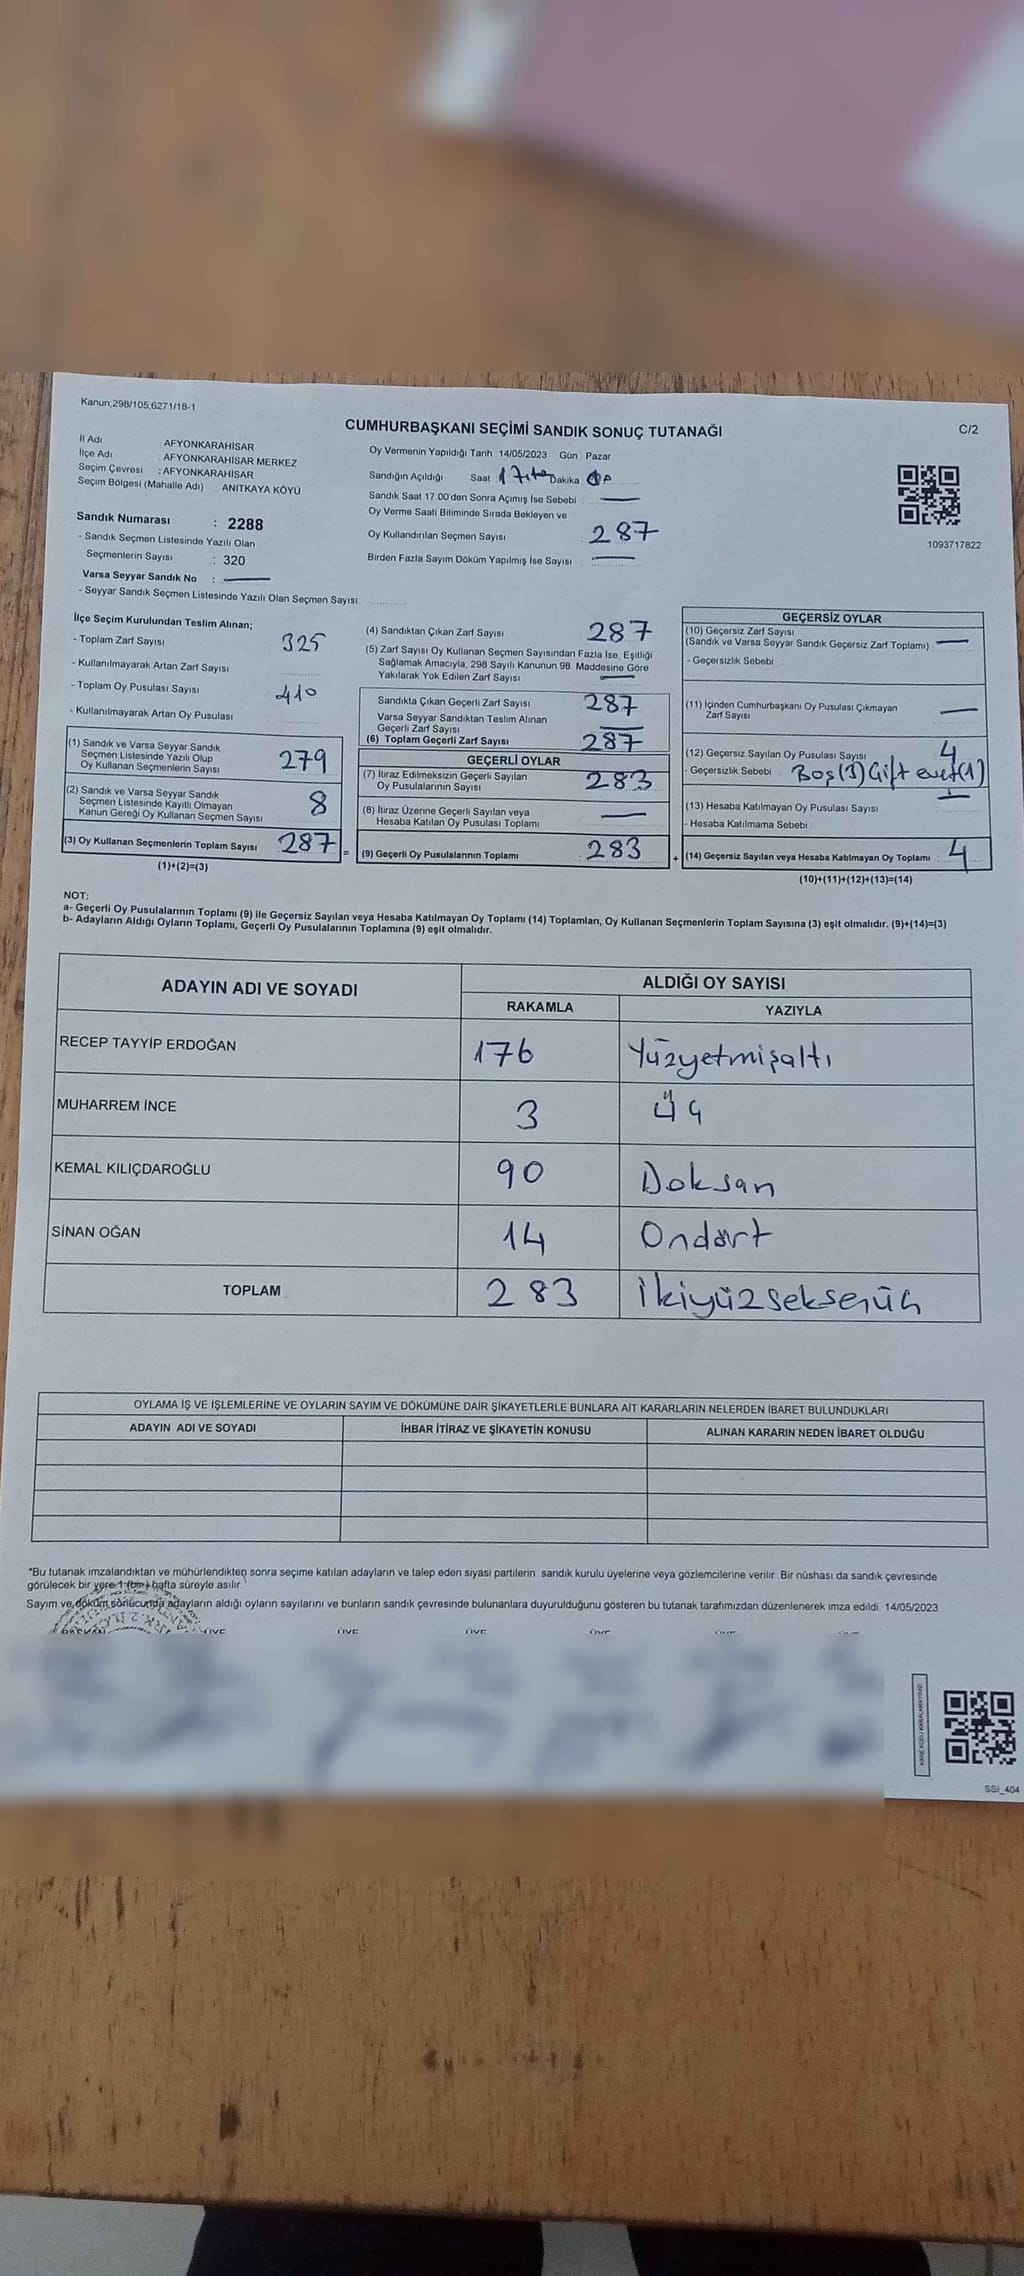 Kanun,298/105,6271/18-1
CUMHURBAŞKANI SEÇİMİ SANDIK SONUÇ TUTANAĞI
C/2
İl Adı : AFYONKARAHİSAR
İlçe Adı : AFYONKARAHİSAR MERKEZ
Seçim Çevresi : AFYONKARAHİSAR
Seçim Bölgesi (Mahalle Adı) : ANITKAYA KÖYÜ
Sandık Numarası : 2288
- Sandık Seçmen Listesinde Yazılı Olan
Seçmenlerin Sayısı : 320
Varsa Seyyar Sandık No :
- Seyyar Sandık Seçmen Listesinde Yazılı Olan Seçmen Sayısı:
Oy Vermenin Yapıldığı Tarih 14/05/2023 Gün Pazar
Sandığın Açıldığı Saat 17 Dakika
Sandık Saat 17.00'den Sonra Açımış İse Sebebi
Oy Verme Saati Bitiminde Sırada Bekleyen ve
Oy Kullandırılan Seçmen Sayısı : 287
Birden Fazla Sayım Döküm Yapılmış İse Sayısı
1093717822
İlçe Seçim Kurulundan Teslim Alınan;
- Toplam Zarf Sayısı 325
- Kullanılmayarak Artan Zarf Sayısı
- Toplam Oy Pusulası Sayısı 410
- Kullanılmayarak Artan Oy Pusulası
(1) Sandık ve Varsa Seyyar Sandık
Seçmen Listesinde Yazılı Olup
Oy Kullanan Seçmenlerin Sayısı 279
(2) Sandık ve Varsa Seyyar Sandık
Seçmen Listesinde Kayıtlı Olmayan
Kanun Gereği Oy Kullanan Seçmen Sayısı 8
(3) Oy Kullanan Seçmenlerin Toplam Sayısı 287 =
(1)+(2)=(3)
(4) Sandıktan Çıkan Zarf Sayısı 287
(5) Zarf Sayısı Oy Kullanan Seçmen Sayısından Fazla İse, Eşitliği
Sağlamak Amacıyla, 298 Sayılı Kanunun 98. Maddesine Göre
Yakılarak Yok Edilen Zarf Sayısı
Sandıkta Çıkan Geçerli Zarf Sayısı 287
Varsa Seyyar Sandıktan Teslim Alınan
Geçerli Zarf Sayısı
(6) Toplam Geçerli Zarf Sayısı 287
GEÇERLİ OYLAR
(7) İtiraz Edilmeksizin Geçerli Sayılan
Oy Pusulalarının Sayısı 283
(8) İtiraz Üzerine Geçerli Sayılan veya
Hesaba Katılan Oy Pusulası Toplamı
(9) Geçerli Oy Pusulalarının Toplamı 283 +
GEÇERSİZ OYLAR
(10) Geçersiz Zarf Sayısı
(Sandık ve Varsa Seyyar Sandık Geçersiz Zarf Toplamı)
- Geçersizlik Sebebi
(11) İçinden Cumhurbaşkanı Oy Pusulası Çıkmayan
Zarf Sayısı
(12) Geçersiz Sayılan Oy Pusulası Sayısı 4
- Geçersizlik Sebebi Boş(3) Çift evet(1)
(13) Hesaba Katılmayan Oy Pusulası Sayısı
- Hesaba Katılmama Sebebi
(14) Geçersiz Sayılan veya Hesaba Katılmayan Oy Toplamı 4
(10)+(11)+(12)+(13)=(14)
NOT:
a- Geçerli Oy Pusulalarının Toplamı (9) ile Geçersiz Sayılan veya Hesaba Katılmayan Oy Toplamı (14) Toplamları, Oy Kullanan Seçmenlerin Toplam Sayısına (3) eşit olmalıdır. (9)+(14)=(3)
b- Adayların Aldığı Oyların Toplamı, Geçerli Oy Pusulalarının Toplamına (9) eşit olmalıdır.
ADAYIN ADI VE SOYADI
ALDIĞI OY SAYISI
RAKAMLA YAZIYLA
RECEP TAYYİP ERDOĞAN 176 Yüzyetmişaltı
MUHARREM İNCE 3 Üç
KEMAL KILIÇDAROĞLU 90 Doksan
SİNAN OĞAN 14 Ondört
TOPLAM 283 İkiyüzseksenüç
OYLAMA İŞ VE İŞLEMLERİNE VE OYLARIN SAYIM VE DÖKÜMÜNE DAİR ŞİKAYETLERLE BUNLARA AİT KARARLARIN NELERDEN İBARET BULUNDUKLARI
ADAYIN ADI VE SOYADI İHBAR İTİRAZ VE ŞİKAYETİN KONUSU ALINAN KARARIN NEDEN İBARET OLDUĞU
*Bu tutanak imzalandıktan ve mühürlendikten sonra seçime katılan adayların ve talep eden siyasi partilerin sandık kurulu üyelerine veya gözlemcilerine verilir. Bir nüshası da sandık çevresinde
görülecek bir yere 1 (bir) hafta süreyle asılır.
Sayım ve döküm sonucunda adayların aldığı oyların sayılarını ve bunların sandık çevresinde bulunanlara duyurulduğunu gösteren bu tutanak tarafımızdan düzenlenerek imza edildi. 14/05/2023
BAŞKAN ÜYE ÜYE ÜYE ÜYE ÜYE ÜYE
SSI_404